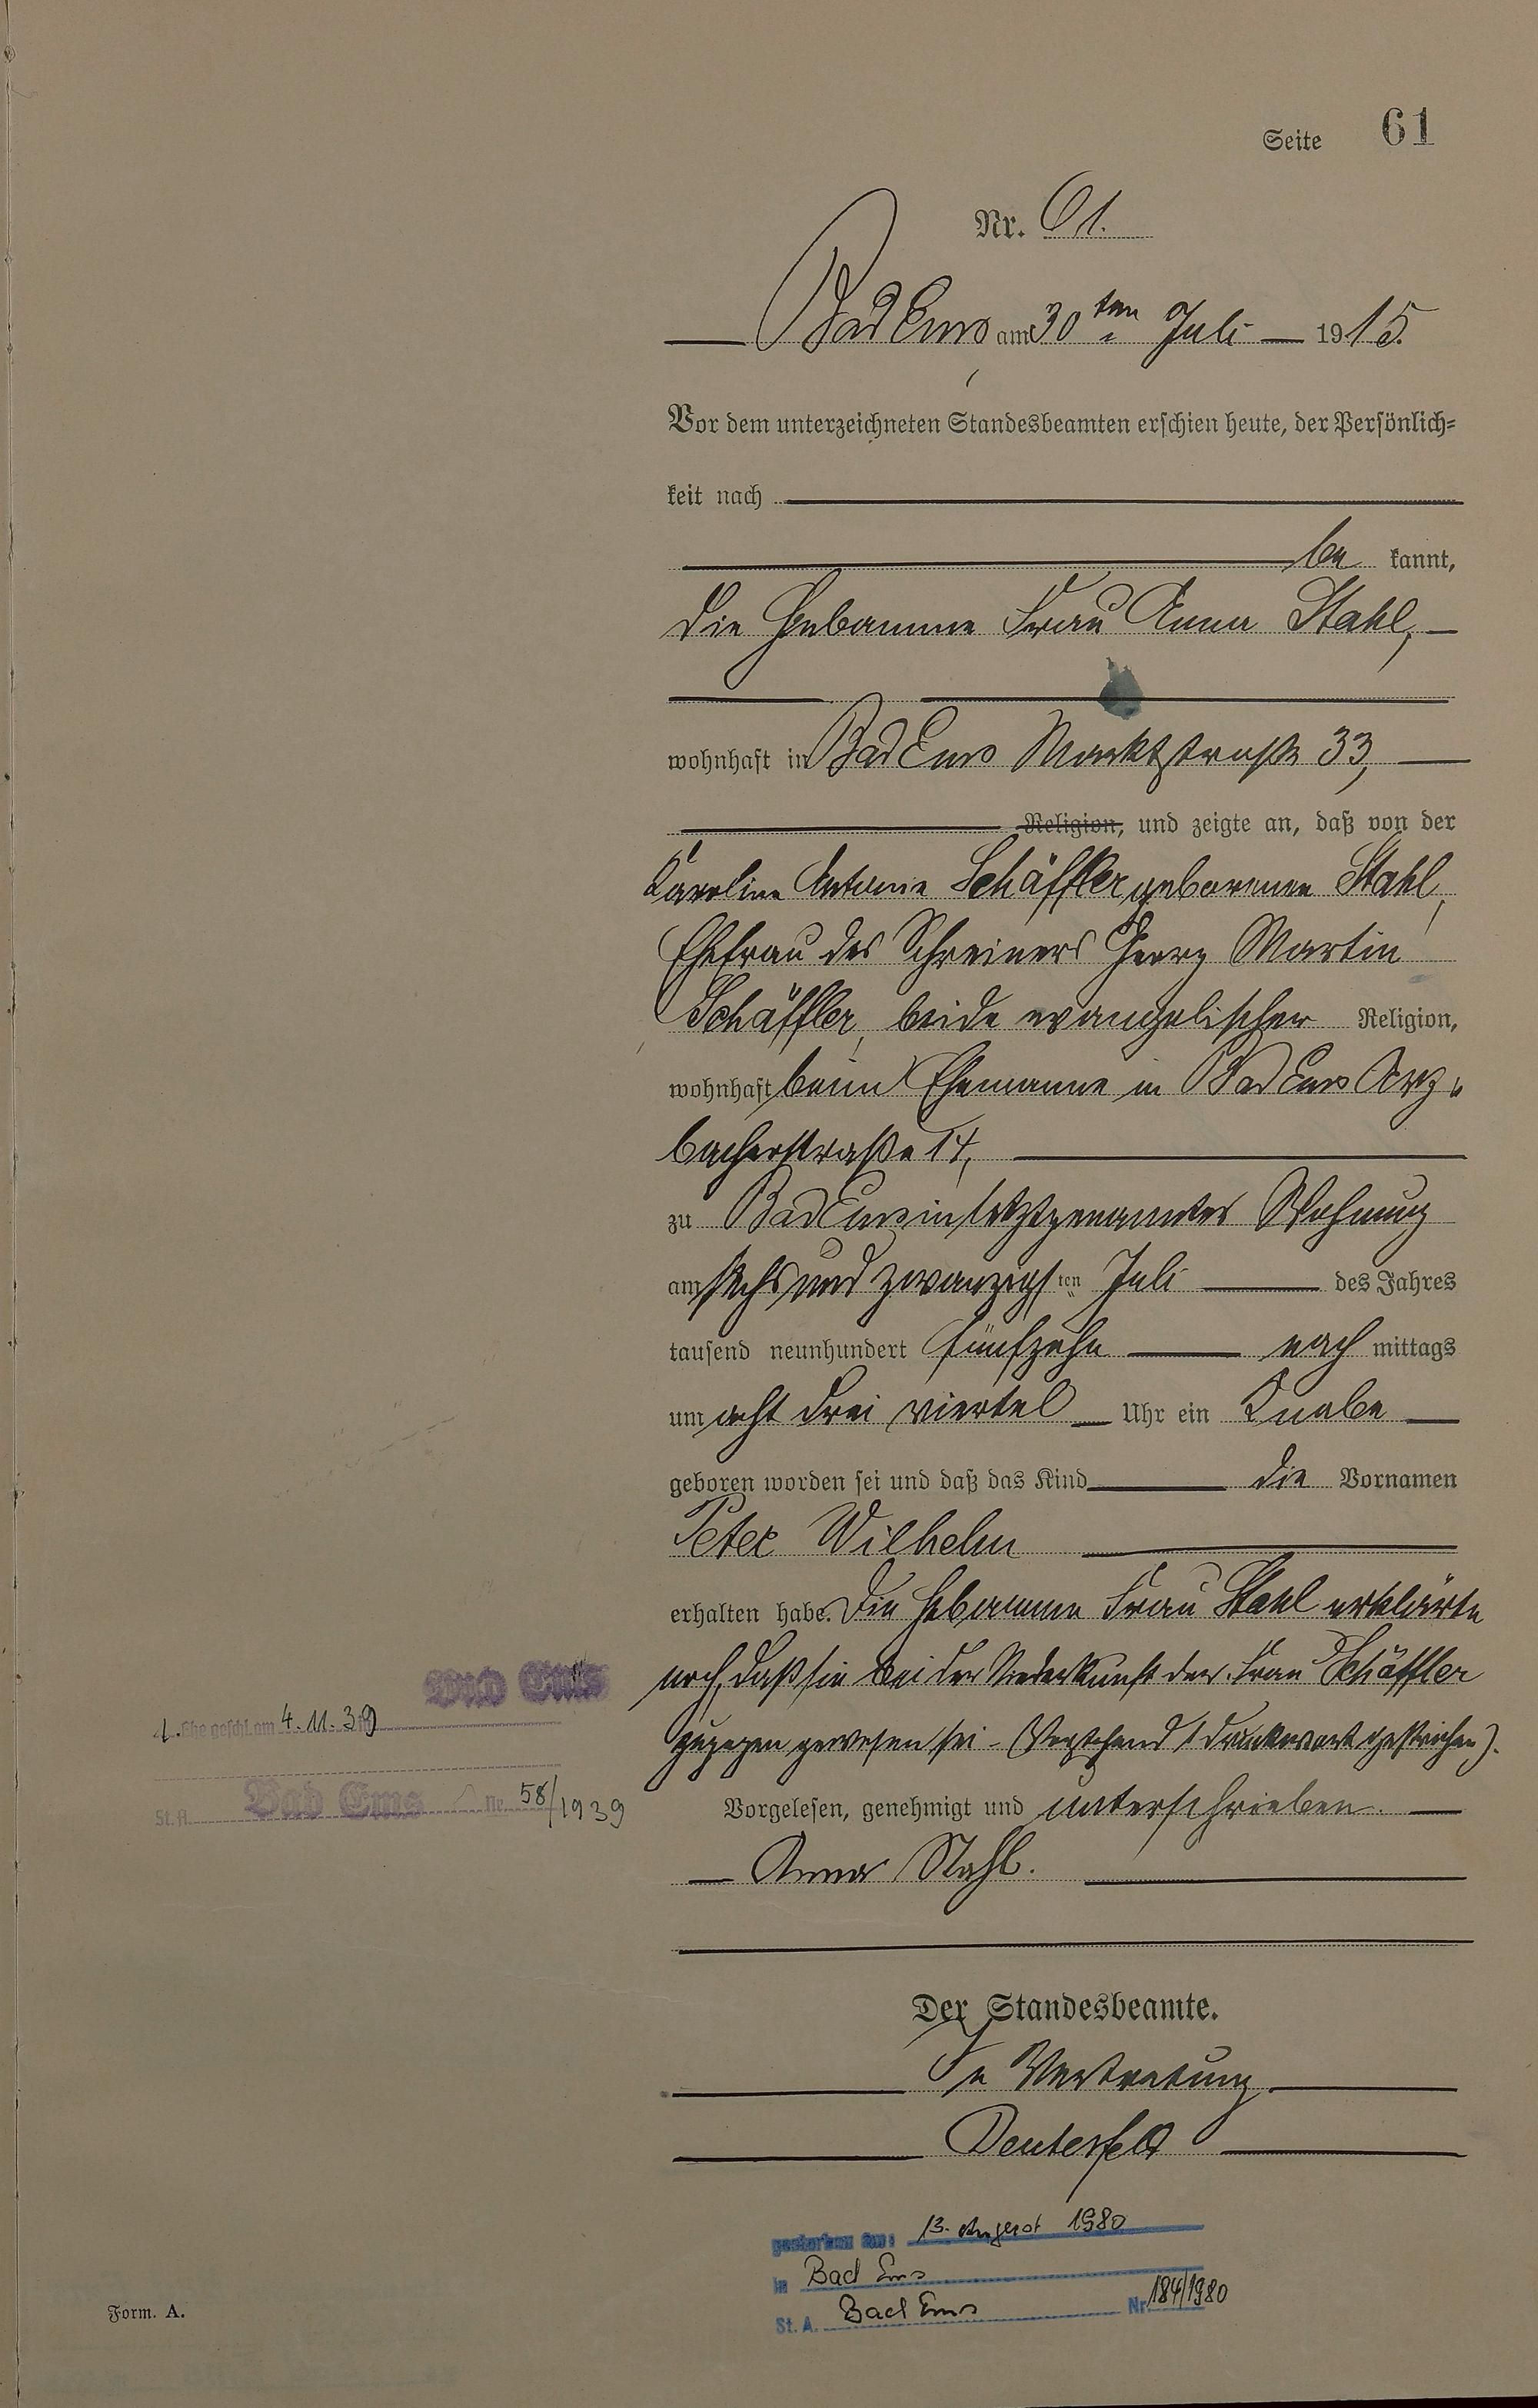 Seite 61
Nr. 61.
Bad Ems am 30 ten Juli 1915.
Vor dem unterzeichneten Standesbeamten erschien heute, der Persönlich=
keit nach
be kannt,
die Hebamme Frau Anna Stahl,
wohnhaft in Bad Ems Marktstraße 33,
Religion, und zeigte an, daß von der
Karoline Antonie Schäffler geborenen Stahl,
Ehefrau des Schreiners Georg Martin
Schäffler, beide evangelischer Religion,
wohnhaft beim Ehemanne in Bad Ems Arz=
bacherstraße 14,
zu Bad Ems in letztgenannter Wohnung
am sechs und zwanzigsten Juli des Jahres
tausend neunhundert fünfzehn nach mittags
um acht drei viertel Uhr ein Knabe
geboren worden sei und daß das Kind die Vornamen
Peter Wilhelm
erhalten habe. Die Hebamme Frau Stahl erklärte
noch, daß sie bei der Niederkunft der Frau Schäffler
zugegen gewesen sei - (Vorstehend 1 Druckwort gestrichen).
Vorgelesen, genehmigt und unterschrieben.
Anna Stahl.
Der Standesbeamte.
In Vertretung
Deutesfeld
1. Ehe geschl. am 4.11.39 in Bad Ems
St. A. Bad Ems Nr. 58/1939
gestorben am: 13. August 1980
in Bad Ems
St. A. Bad Ems Nr. 184/1980
Form. A.